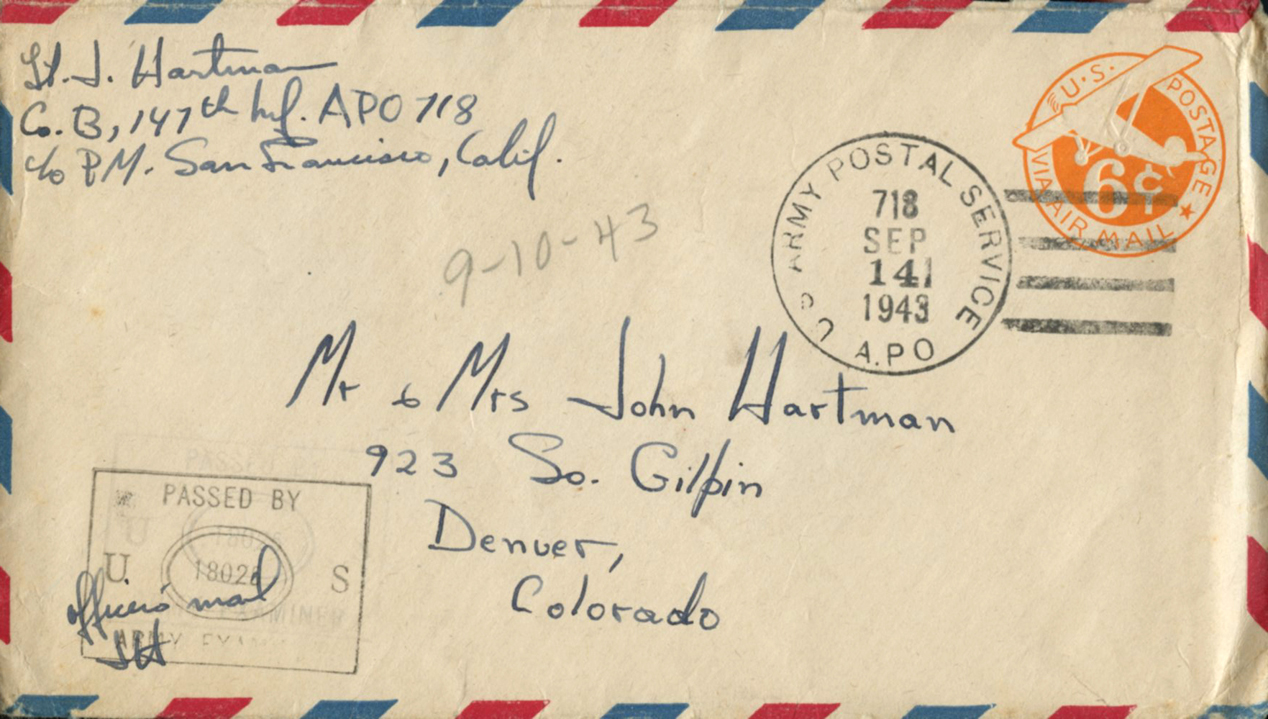 Lt. J. Hartman
Co. B, 147th Inf. APO 718
c/o P.M. San Francisco, Calif.
U·S· POSTAGE
6¢
VIA AIR MAIL
U S ARMY POSTAL SERVICE
718
SEP
14
1943
A.P.O
9-10-43
Mr & Mrs John Hartman
923 So. Gilpin
Denver,
Colorado
PASSED BY
U S
officers mail
ARMY EXAMINER
JH